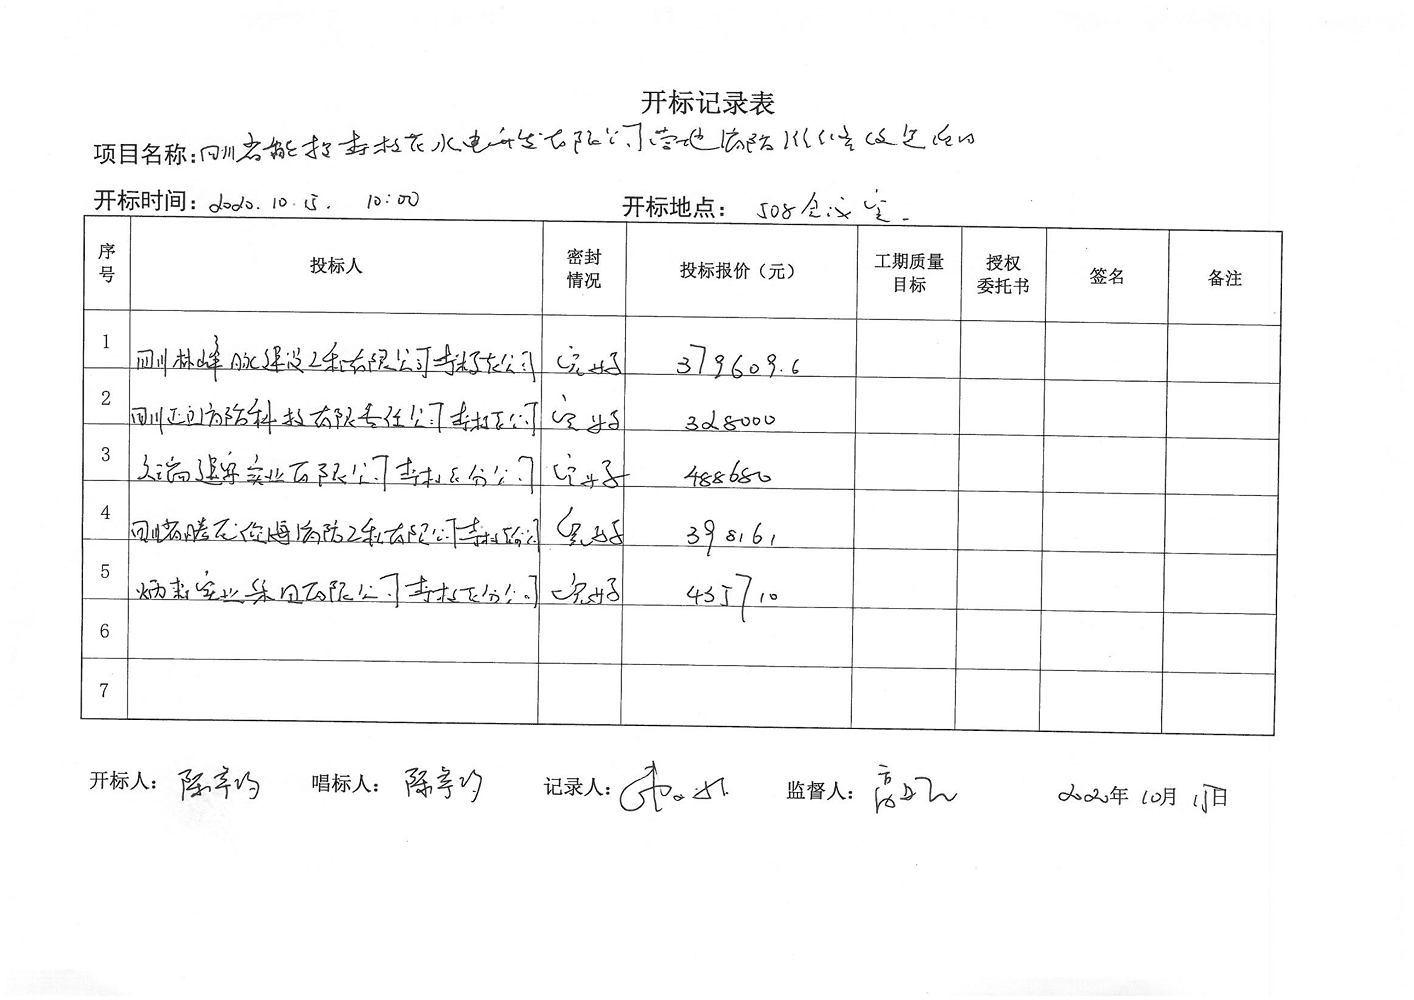 开标记录表
项目名称:四川省能投攀枝花水电开发有限公司营地消防改造项目
开标时间:2020.10.15. 10:00 开标地点: 508会议室.
序号 投标人 密封情况 投标报价（元） 工期质量目标 授权委托书 签名 备注
1 四川林峰脉建设工程有限公司攀枝花公司 完好 379609.6
2 四川正信消防科技有限责任公司攀枝花公司 完好 328000
3 建实业有限公司攀枝花分公司 完好 488680
4 四川省腾龙消防工程有限公司攀枝花分公司 完好 398161
5 实业集团有限公司攀枝花分公司 完好 435710
6
7
开标人: 陈 唱标人: 陈 记录人: 监督人: 高 2020年 10月 15日